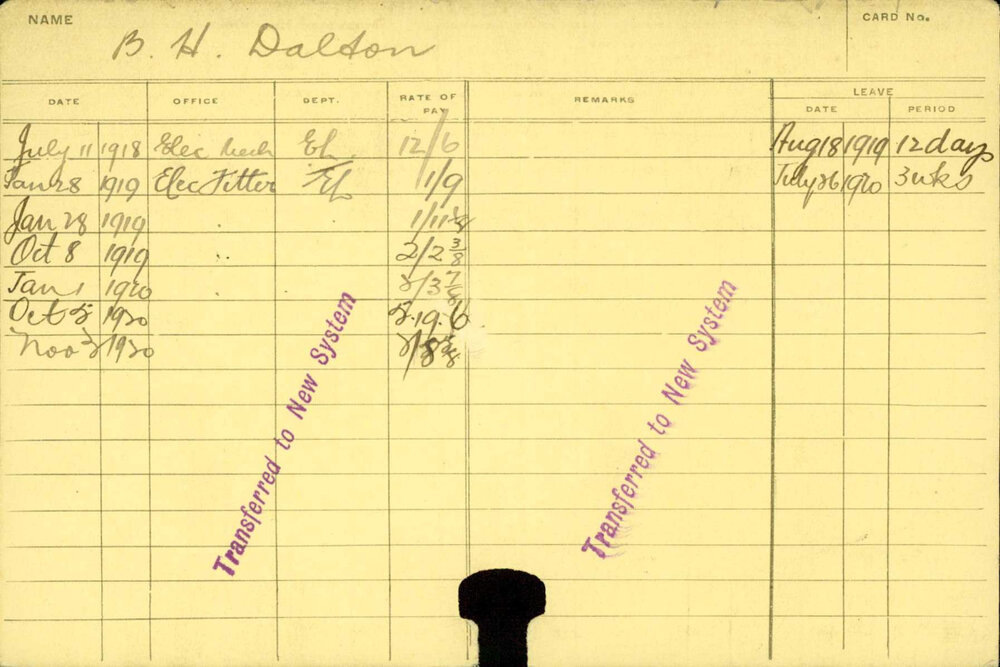 NAME
CARD No.
B. H. Dalton
DATE OFFICE DEPT. RATE OF PAY REMARKS LEAVE
DATE PERIOD
July 11 1918 Elec Mech El 12/6 Aug 18 1919 12 days
Jan 28 1919 Elec Fitter El 1/9 July 26 1920 3 wks
Jan 28 1919 1/11
Oct 8 1919 2/2 3/8
Jan 1 1920 2/3
Oct 1920 5.19.6
Nov 1920
Transferred to New System
Transferred to New System